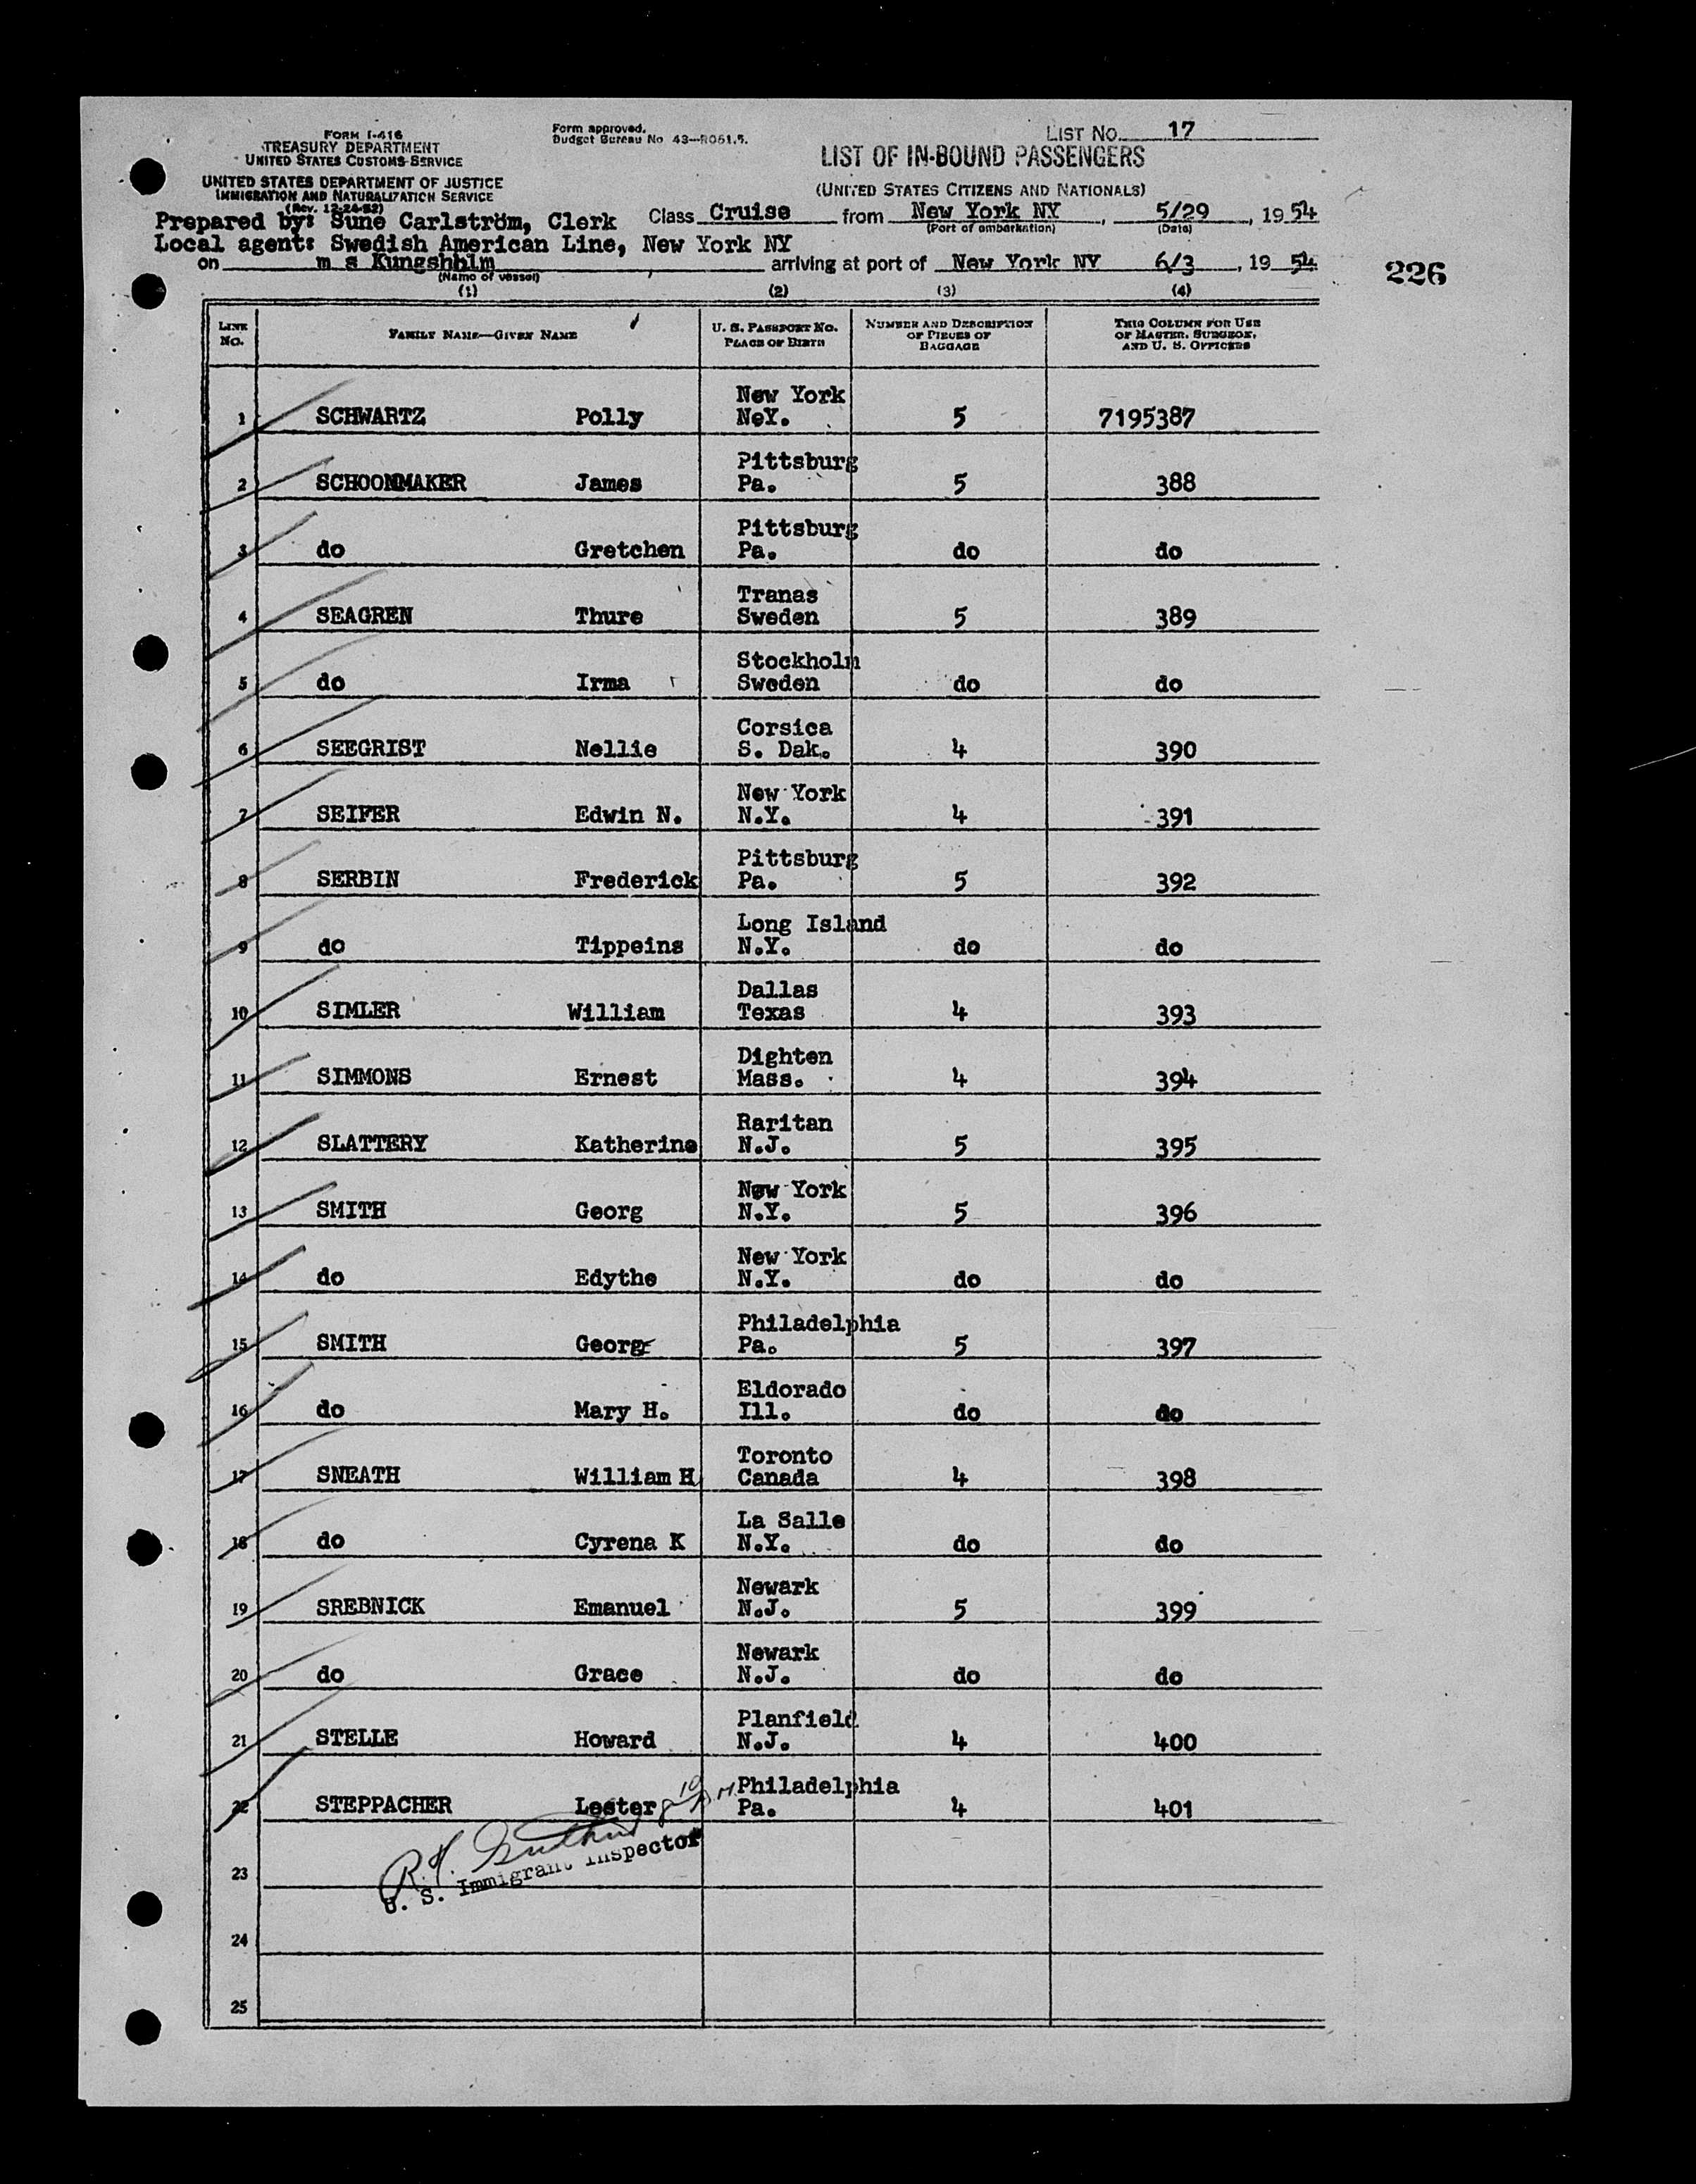 FORM I-416
TREASURY DEPARTMENT
UNITED STATES CUSTOMS SERVICE
UNITED STATES DEPARTMENT OF JUSTICE
IMMIGRATION AND NATURALIZATION SERVICE
(Rev. 12-24-52)
Form approved.
Budget Bureau No 43-R061.5.
LIST No. 17
LIST OF IN-BOUND PASSENGERS
(UNITED STATES CITIZENS AND NATIONALS)
Prepared by: Sune Carlström, Clerk Class Cruise from New York NY, 5/29, 19 54
(Port of embarkation) (Date)
Local agent: Swedish American Line, New York NY
on m s Kungshhlm, arriving at port of New York NY 6/3, 19 54
(Name of vessel)
226
(1) (2) (3) (4)
LINE No. FAMILY NAME—GIVEN NAME U. S. PASSPORT No. PLACE OF BIRTH NUMBER AND DESCRIPTION OF PIECES OF BAGGAGE THIS COLUMN FOR USE OF MASTER, SURGEON, AND U. S. OFFICERS
New York
1 SCHWARTZ Polly NeY. 5 7195387
Pittsburg
2 SCHOONMAKER James Pa. 5 388
Pittsburg
3 do Gretchen Pa. do do
Tranas
4 SEAGREN Thure Sweden 5 389
Stockholm
5 do Irma Sweden do do
Corsica
6 SEEGRIST Nellie S. Dak. 4 390
New York
7 SEIFER Edwin N. N.Y. 4 391
Pittsburg
8 SERBIN Frederick Pa. 5 392
Long Island
9 do Tippeins N.Y. do do
Dallas
10 SIMLER William Texas 4 393
Dighten
11 SIMMONS Ernest Mass. 4 394
Raritan
12 SLATTERY Katherine N.J. 5 395
New York
13 SMITH Georg N.Y. 5 396
New York
14 do Edythe N.Y. do do
Philadelphia
15 SMITH George Pa. 5 397
Eldorado
16 do Mary H. Ill. do do
Toronto
17 SNEATH William H Canada 4 398
La Salle
18 do Cyrena K N.Y. do do
Newark
19 SREBNICK Emanuel N.J. 5 399
Newark
20 do Grace N.J. do do
Planfield
21 STELLE Howard N.J. 4 400
Philadelphia
22 STEPPACHER Lester Pa. 4 401
R.H.
U. S. Immigrant Inspector
23
24
25